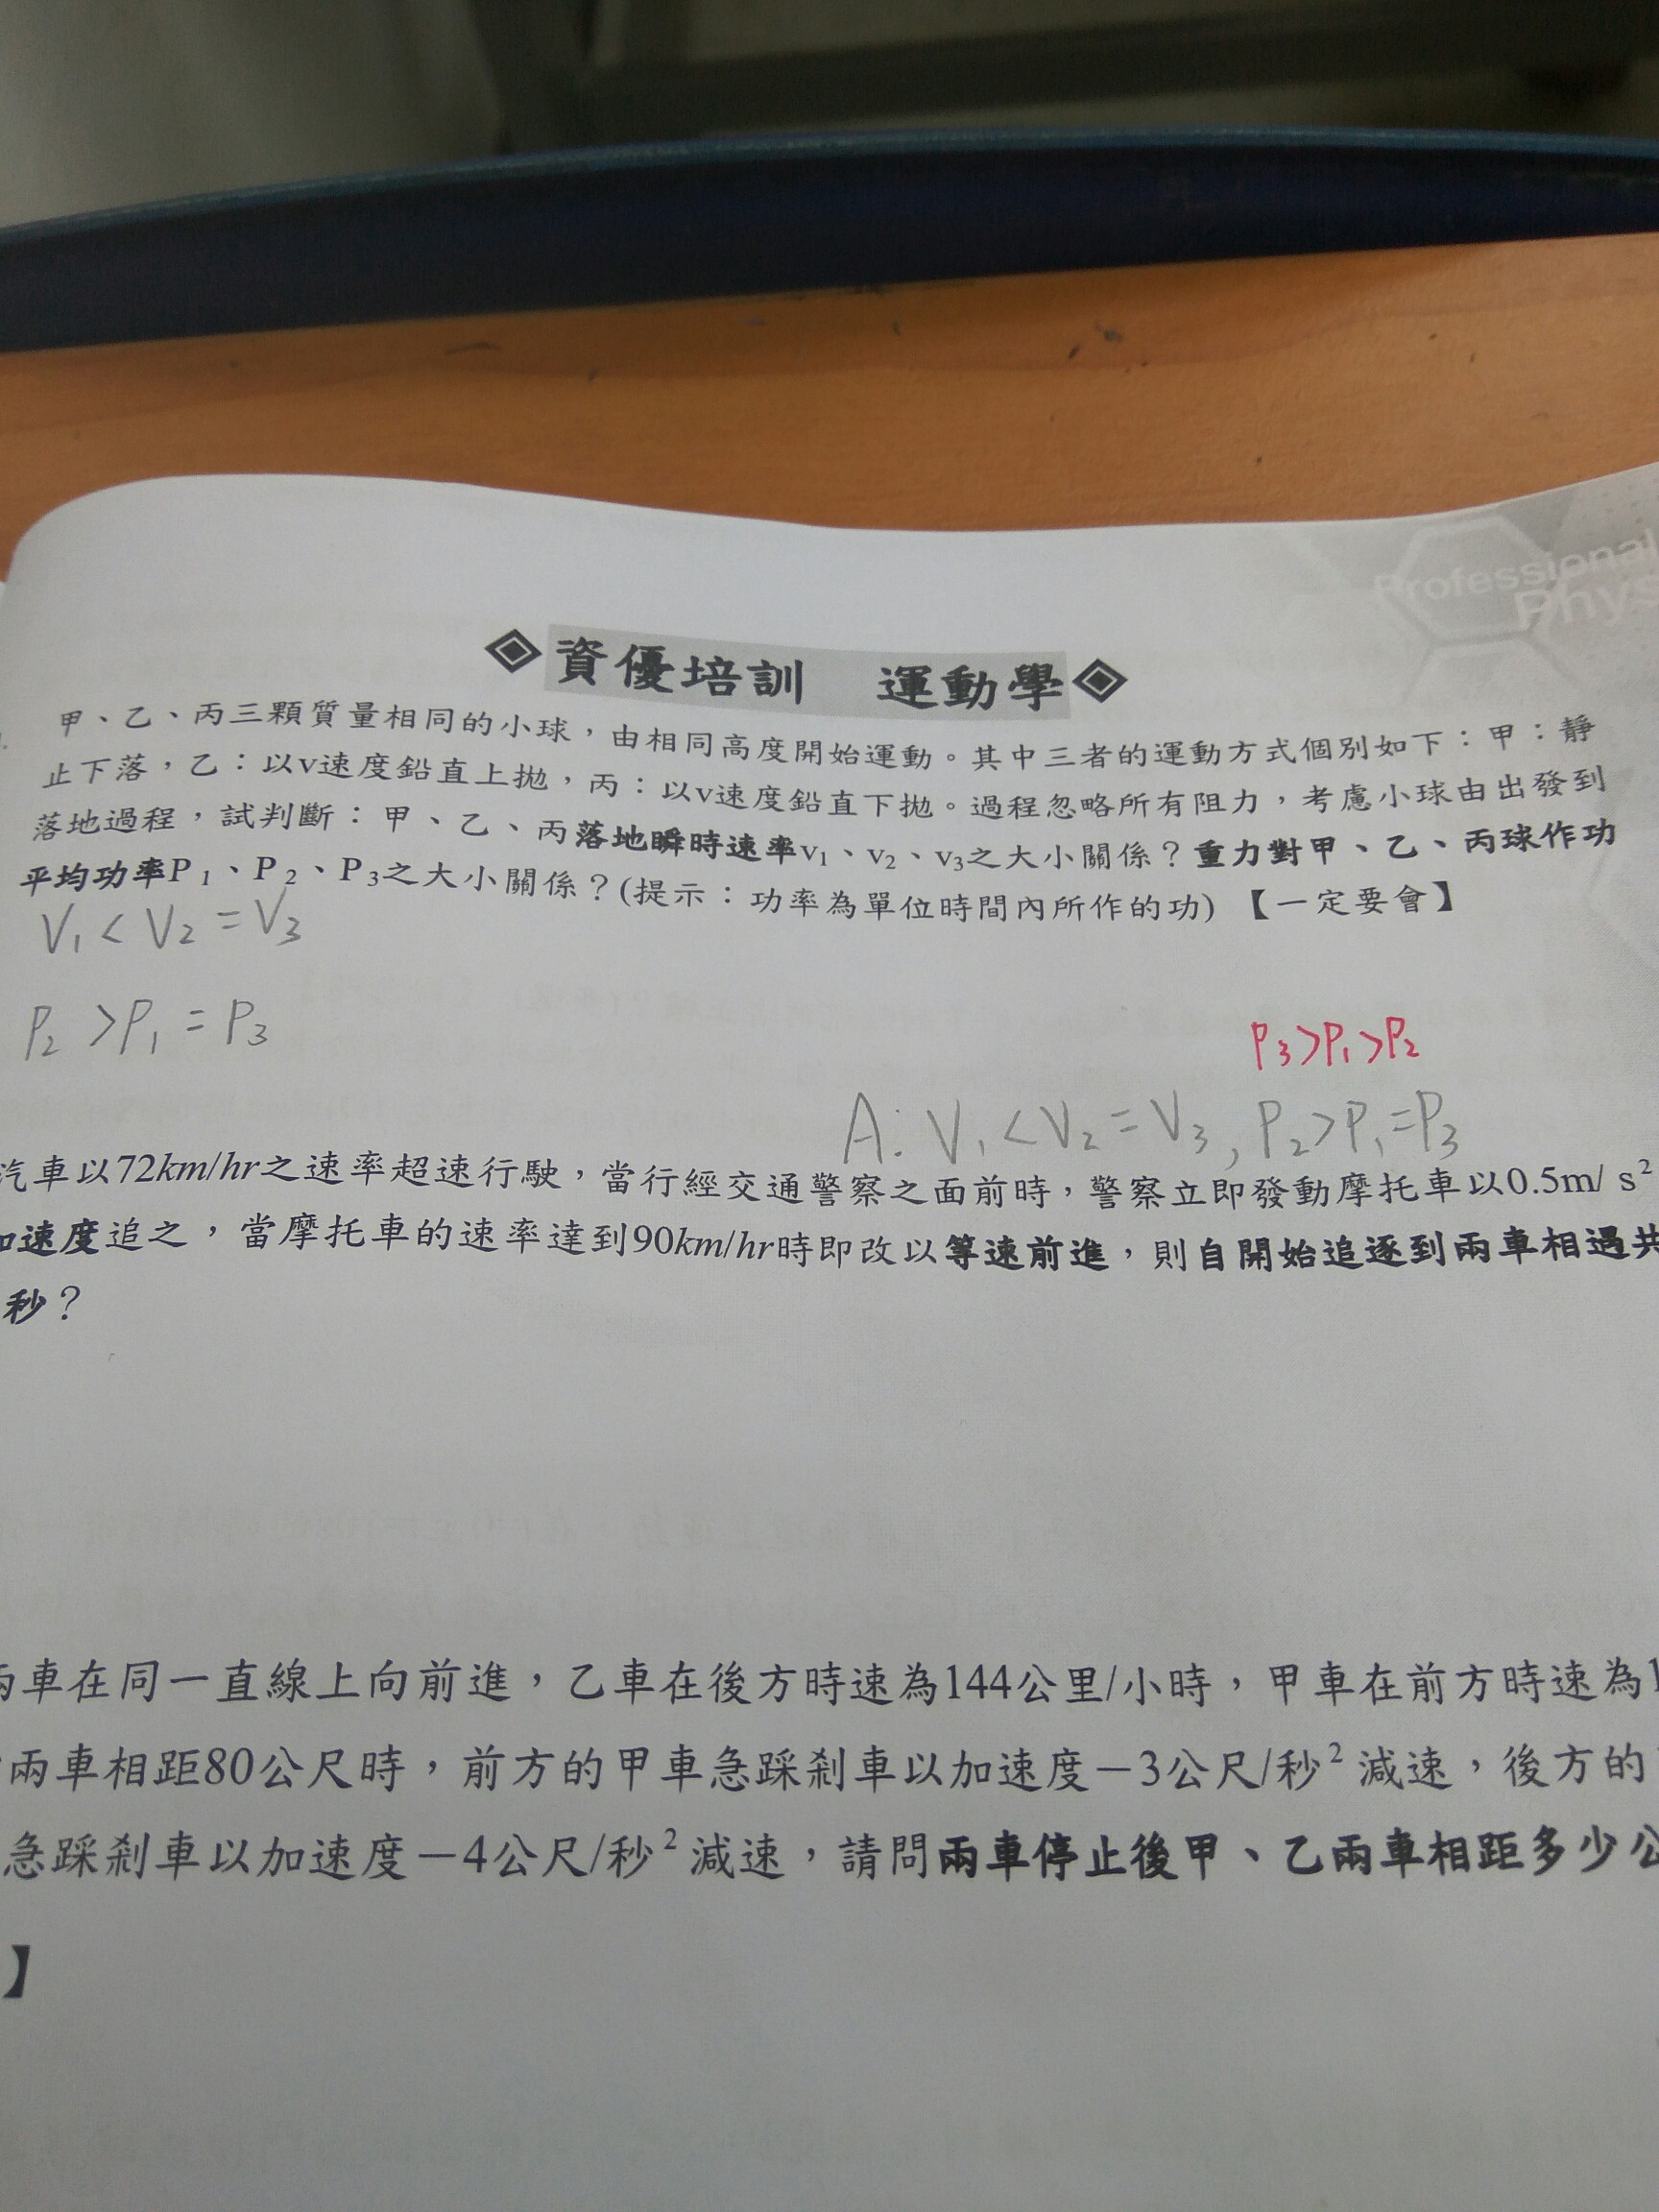 Professional
Phys
資優培訓 運動學
甲、乙、丙三顆質量相同的小球，由相同高度開始運動。其中三者的運動方式個別如下：甲：靜
止下落，乙：以v速度鉛直上拋，丙：以v速度鉛直下拋。過程忽略所有阻力，考慮小球由出發到
落地過程，試判斷：甲、乙、丙落地瞬時速率v₁、v₂、v₃之大小關係？重力對甲、乙、丙球作功
平均功率P₁、P₂、P₃之大小關係？(提示：功率為單位時間內所作的功)【一定要會】
V₁ < V₂ = V₃
P₂ > P₁ = P₃
P₃>P₁>P₂
A: V₁ < V₂ = V₃, P₂>P₁=P₃
汽車以72km/hr之速率超速行駛，當行經交通警察之面前時，警察立即發動摩托車以0.5m/ s²
加速度追之，當摩托車的速率達到90km/hr時即改以等速前進，則自開始追逐到兩車相遇共
秒？
兩車在同一直線上向前進，乙車在後方時速為144公里/小時，甲車在前方時速為1
兩車相距80公尺時，前方的甲車急踩剎車以加速度－3公尺/秒²減速，後方的
急踩剎車以加速度－4公尺/秒²減速，請問兩車停止後甲、乙兩車相距多少公
】